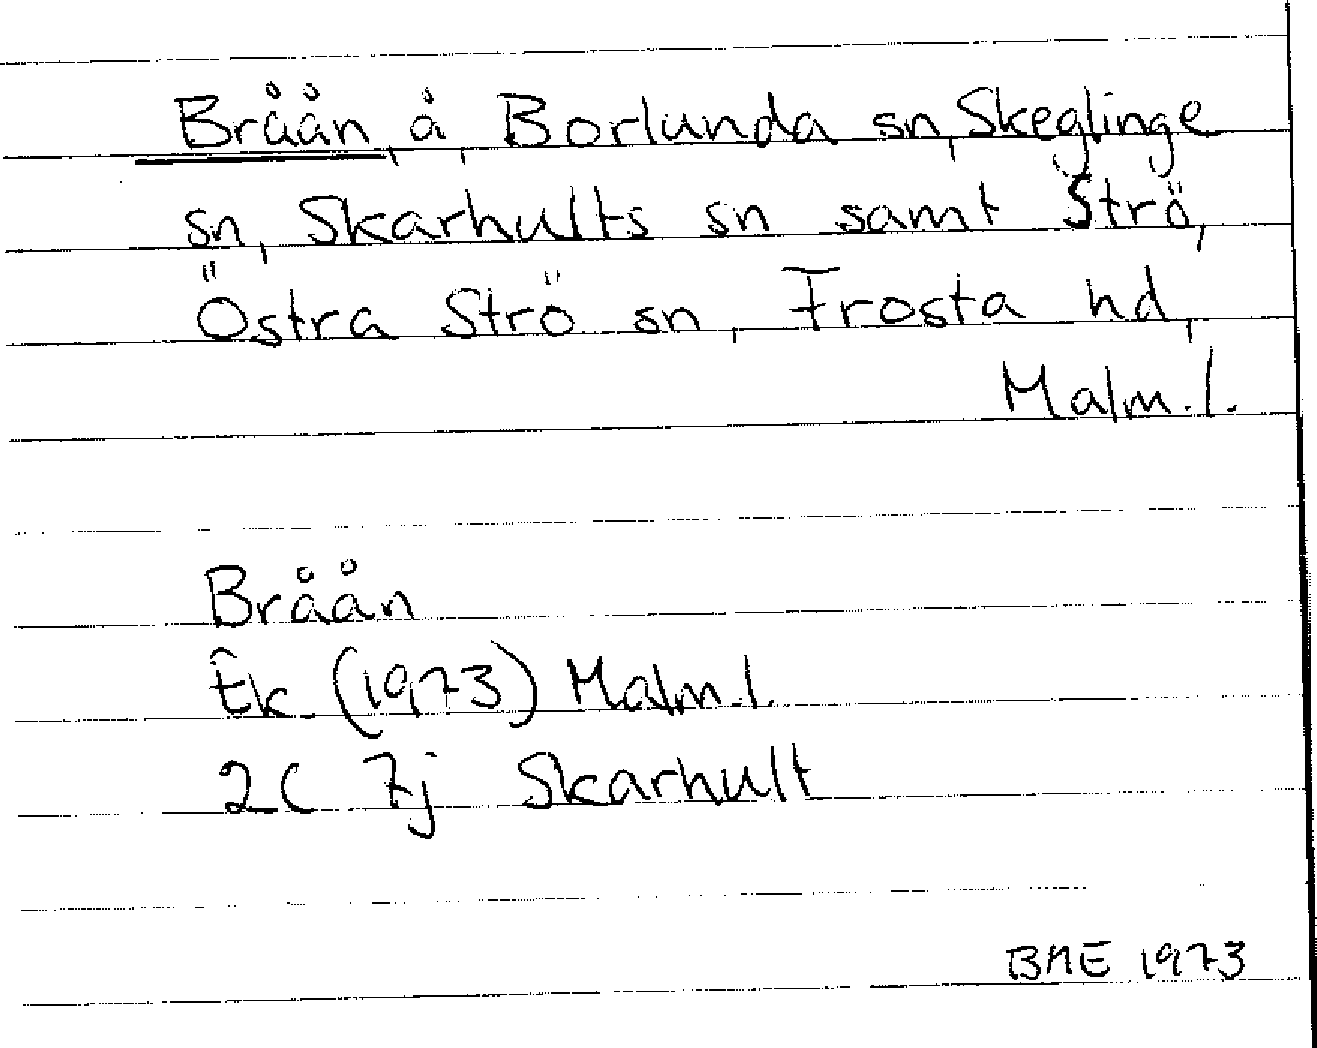 Bråån, å, Borlunda sn, Skeglinge
sn, Skarhults sn samt Strö,
Östra Strö sn, Frosta hd,
Malm.l.
Bråån
Ek (1973) Malm.l.
2C 7j Skarhult
BME 1973